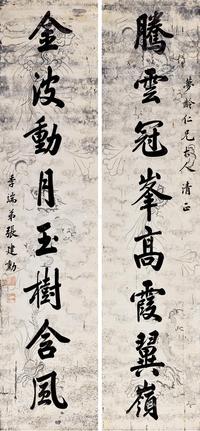 夢齡仁兄大人清正
騰雲冠峯高霞翼嶺
金波動月玉樹含風
季端弟張建勳